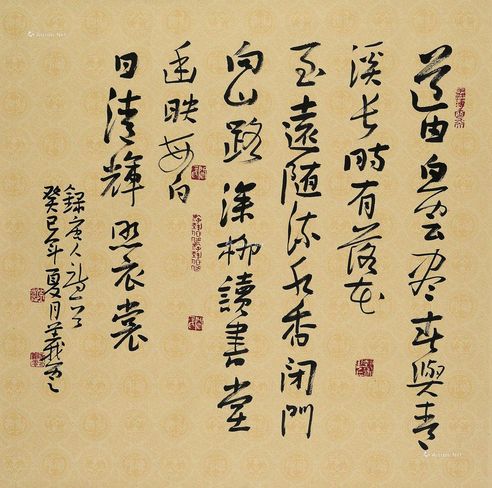 道由白雲盡春與青
溪長時有落花
至遠随流水香閑門
向山路深柳讀書堂
幽映每白
日清輝照衣裳
録唐人詩一首
癸巳年夏月
Artron.Net